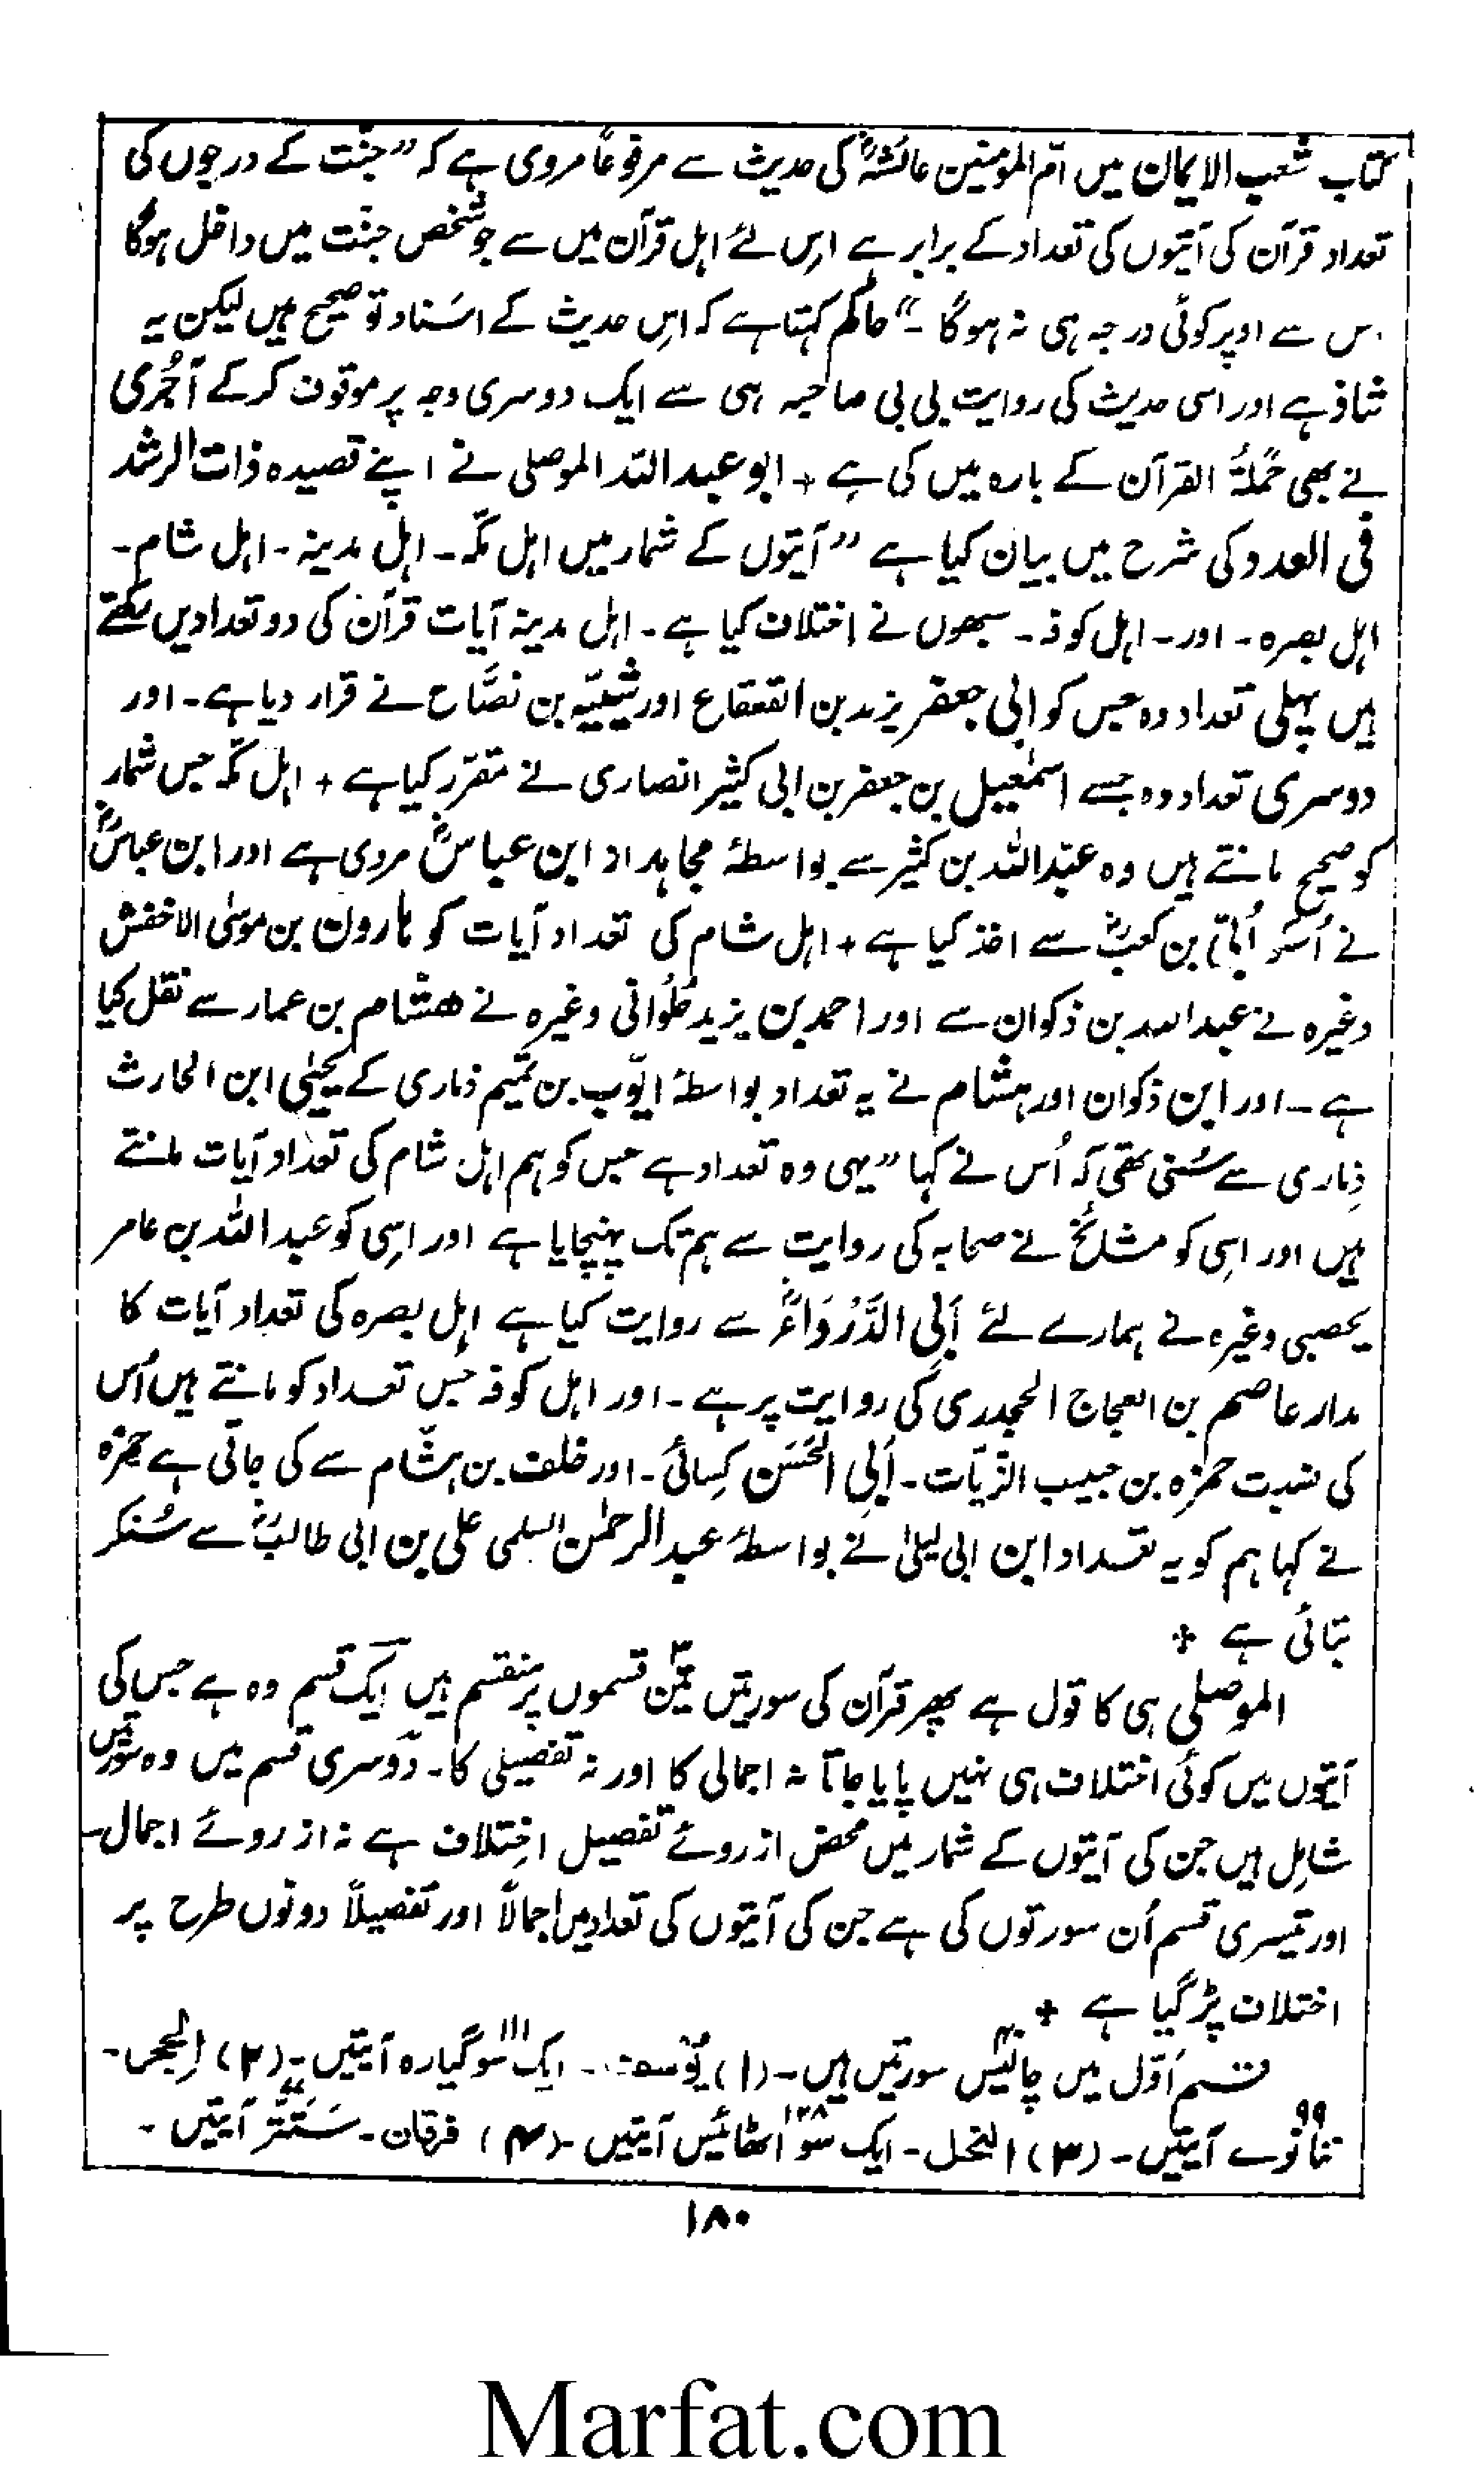 کتاب شعب الایمان میں امّ المؤمنین عائشہؓ کی حدیث سے مرفوعاً مروی ہے کہ ”جنّت کے درجوں کی
تعداد قرآن کی آیتوں کی تعداد کے برابر ہے اِس لئے اہل قرآن میں سے جو شخص جنّت میں داخل ہوگا
اس سے اوپر کوئی درجہ ہی نہ ہوگا ۔“ حاکم کہتا ہے کہ اِس حدیث کے اسَناد تو صحیح ہیں لیکن یہ
شاذ ہے اور اسی حدیث کی روایت بی بی صاحبہ ہی سے ایک دوسری وجہ پر موقوف کر کے آجُری
نے بھی حَمَلۃُ القرآن کے بارہ میں کی ہے + ابو عبد اللہ الموصلی نے اپنے قصیدہ ذات الرشد
فی العدد کی شرح میں بیان کیا ہے ”آیتوں کے شمار میں اہل مکّہ ۔ اہل مدینہ ۔ اہل شام ۔
اہل بصرہ ۔ اور ۔ اہل کوفہ ۔ سبھوں نے اختلاف کیا ہے ۔ اہل مدینہ آیات قرآن کی دو تعدادیں رکھتے
ہیں پہلی تعداد وہ جس کو ابی جعفر یزید بن القعقاع اور شیبہ بن نصَّاح نے قرار دیا ہے ۔ اور
دوسری تعداد وہ جسے اسمٰعیل بن جعفر بن ابی کثیر انصاری نے مقرّر کیا ہے + اہل مکّہ جس شمار
کو صحیح مانتے ہیں وہ عبداللہ بن کثیر سے بواسطۂ مجاہد از ابن عباسؓ مروی ہے اور ابن عباسؓ
نے اُسکو اُبَیّ بن کعبؓ سے اخذ کیا ہے + اہل شام کی تعداد آیات کو ہارون بن موسیٰ الاخفش
وغیرہ نے عبداللہ بن ذکوان سے اور احمد بن یزید حُلوانی وغیرہ نے ھشام بن عمار سے نقل کیا
ہے ۔ اور ابن ذکوان اور ہشام نے یہ تعداد بواسطۂ ایّوب بن تمیم ذماری کے یحییٰ ابن الحارث
ذِماری سے سُنی تھی کہ اُس نے کہا ”یہی وہ تعداد ہے جس کو ہم اہل شام کی تعداد آیات مانتے
ہیں اور اسی کو مشائخ نے صحابہ کی روایت سے ہم تک پہنچایا ہے اور اسی کو عبد اللہ بن عامر
یحصبی وغیرہ نے ہمارے لئے اَبی الدَّرْدَاءؓ سے روایت کیا ہے اہل بصرہ کی تعداد آیات کا
مدار عاصم بن العجاج الجحدری کی روایت پر ہے ۔ اور اہل کوفہ جس تعداد کو مانتے ہیں اُس
کی نسبت حمزہ بن حبیب الزیّات ۔ اَبی الحَسَن کِسائی ۔ اور خلف بن ہشّام سے کی جاتی ہے حمزہ
نے کہا ہم کو یہ تعداد ابن ابی لیلیٰ نے بواسطۂ عبد الرحمٰن السلمی علی بن ابی طالبؓ سے سُنکر
بتائی ہے +
الموصلی ہی کا قول ہے پھر قرآن کی سورتیں تین ۳ قسموں پر منقسم ہیں ایک قسم وہ ہے جس کی
آیتوں میں کوئی اختلاف ہی نہیں پایا جاتا نہ اجمالی کا اور نہ تفصیلی کا ۔ دوسری قسم میں وہ سورتیں
شامل ہیں جن کی آیتوں کے شمار میں محض از روئے تفصیل اختلاف ہے نہ از روئے اجمال ۔
اور تیسری قسم اُن سورتوں کی ہے جن کی آیتوں کی تعداد میں اجمالاً اور تفصیلاً دونوں طرح پر
اختلاف پڑ گیا ہے +
قسم اَوّل میں چالیس ۴۰ سورتیں ہیں ۔ (۱) یُوسف ۔ ایک سو گیارہ ۱۱۱ آیتیں ۔ (۲) الحجر ۔
ننانوے ۹۹ آیتیں ۔ (۳) النحل ۔ ایک سو اٹھائیس ۱۲۸ آیتیں ۔ (۴) فرقان ۔ سَتَتّر ۷۷ آیتیں ۔
۱۸۰
Marfat.com